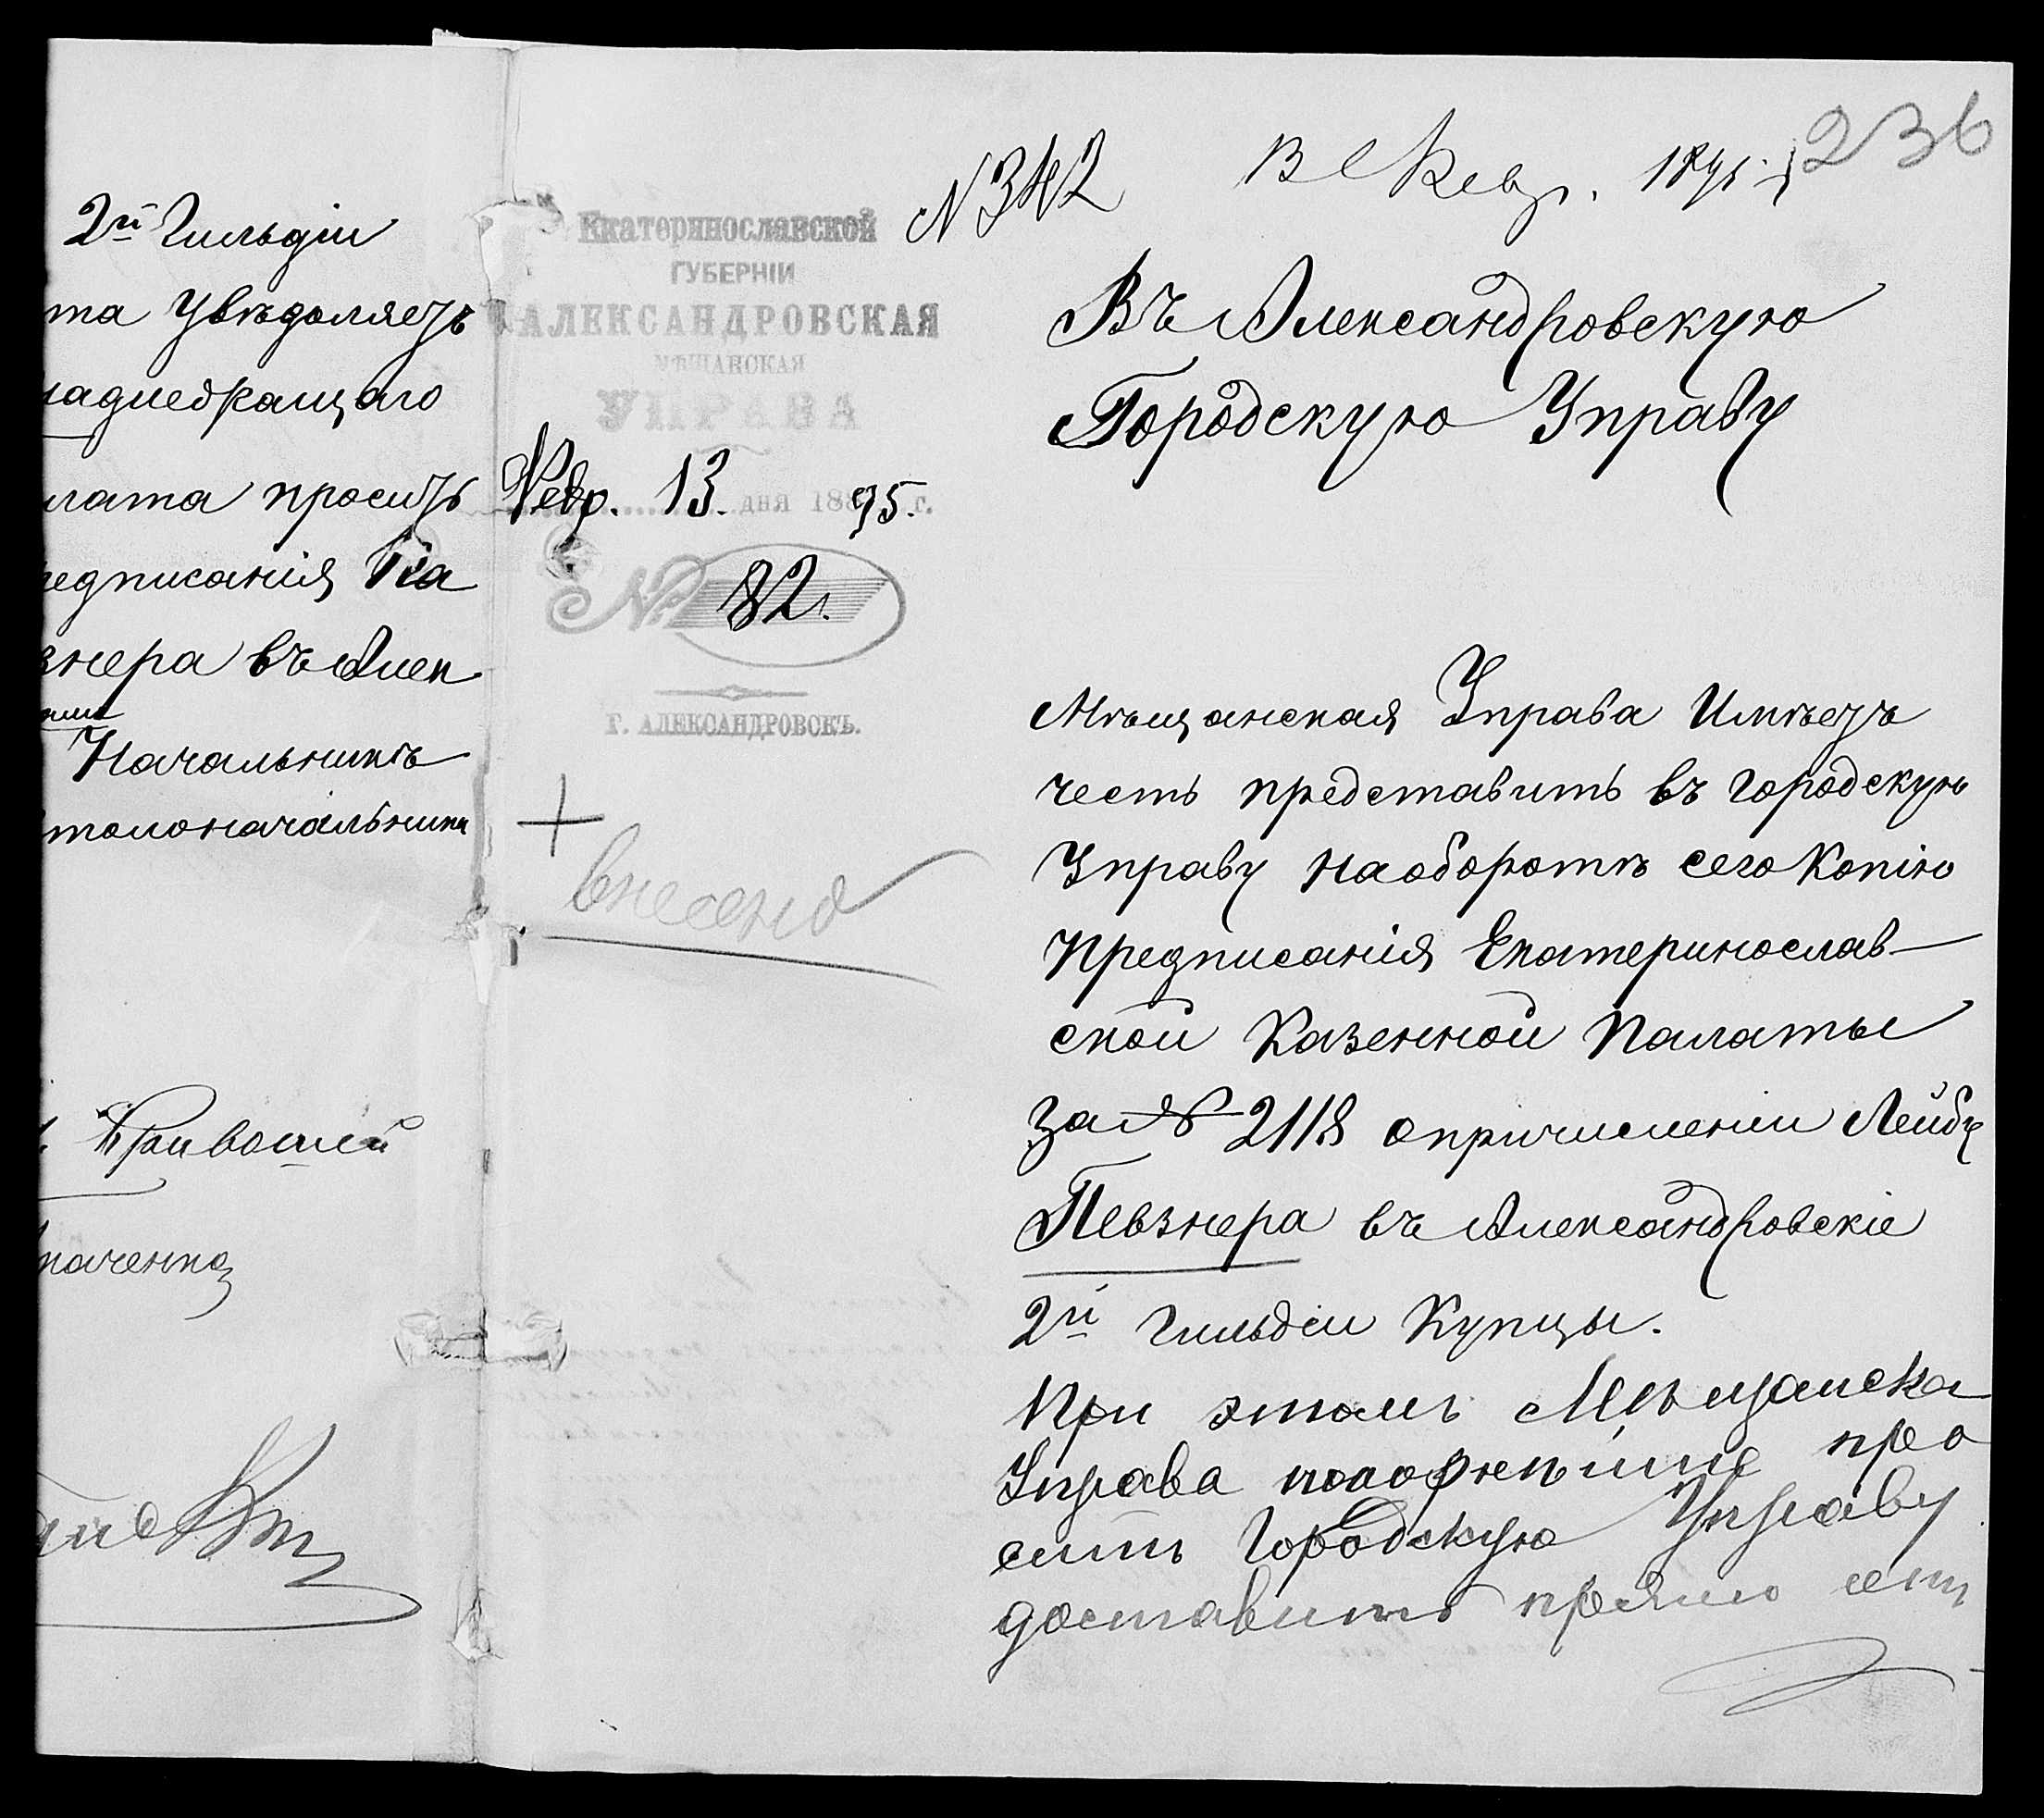 2й Гильдіи
та увѣдомляетъ
надлежащаго
лата проситъ
редписанія Ка
знера въ Алек
Начальникъ
толоначальникъ
Кривошей
каченко
Екатеринославской
ГУБЕРНІИ
АЛЕКСАНДРОВСКАЯ
МѢЩАНСКАЯ
УПРАВА
Февр. 13. дня 1895. г.
№ 82.
Г. АЛЕКСАНДРОВСКЪ.
внесено
N 342
236
Въ Александровскую
Городскую Управу
Мѣщанская Управа Имѣетъ
честь представить въ городскую
Управу на оборотѣ сего Копію
Предписанія Екатеринослав-
ской Казенной Палаты
за № 2118 о причисленіи Лейбу
Певзнера въ Александровскіе
2й гильдіи Купцы.
При этомъ Мѣщанска
Управа покорнѣйше про
ситъ Городскую Управу
доставить прямо